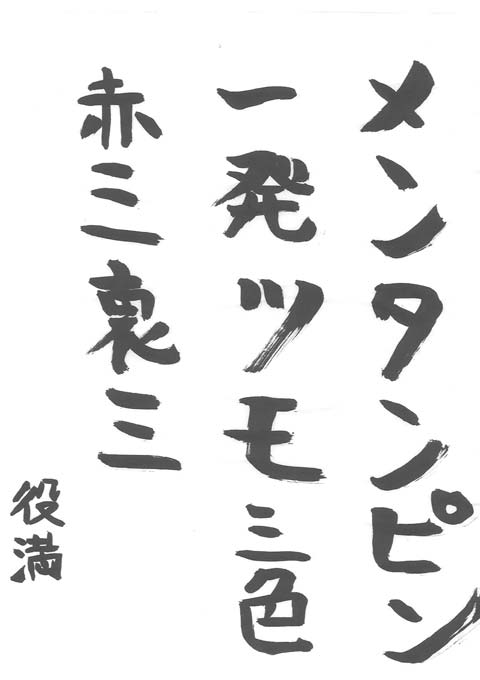 メンタンピン
一発ツモ三色
赤三裏三
役満